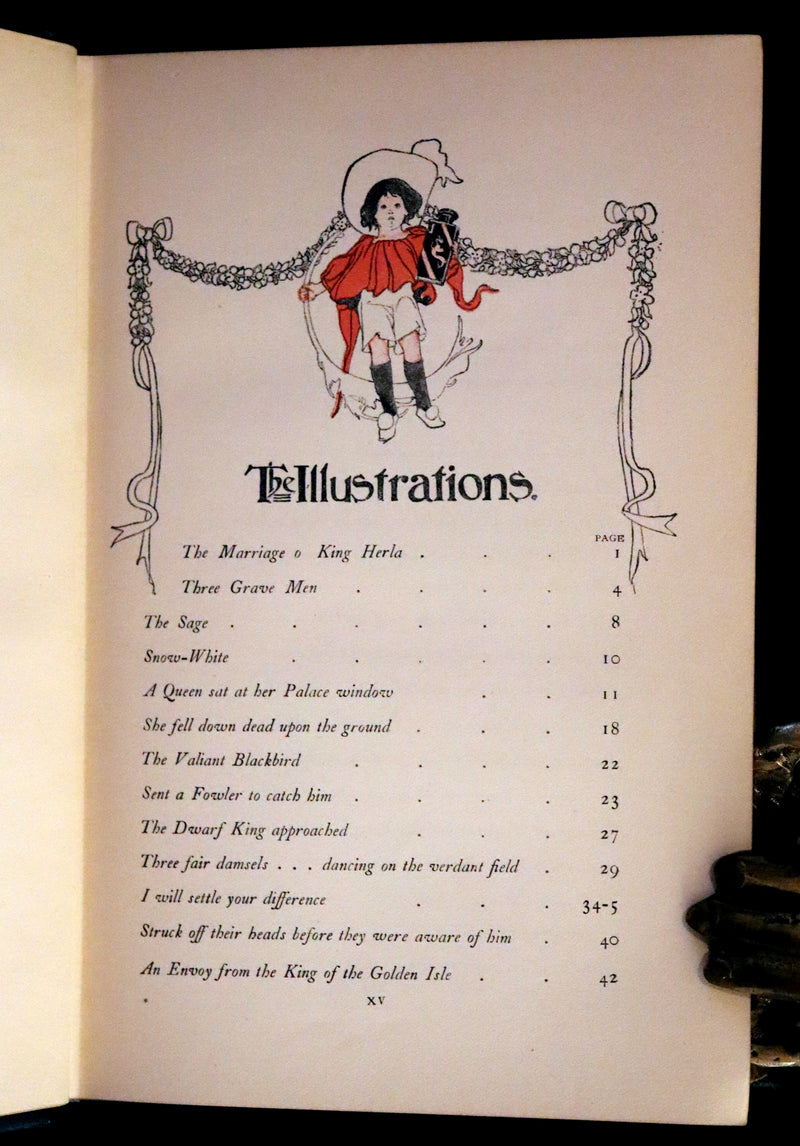 The Illustrations.
PAGE
The Marriage o King Herla . . . 1
Three Grave Men . . . . 4
The Sage . . . . . . 8
Snow-White . . . . . 10
A Queen sat at her Palace window . . 11
She fell down dead upon the ground . . . 18
The Valiant Blackbird . . . . 22
Sent a Fowler to catch him . . . . 23
The Dwarf King approached . . . 27
Three fair damsels . . . dancing on the verdant field . 29
I will settle your difference . . . 34-5
Struck off their heads before they were aware of him . 40
An Envoy from the King of the Golden Isle . . 42
xv